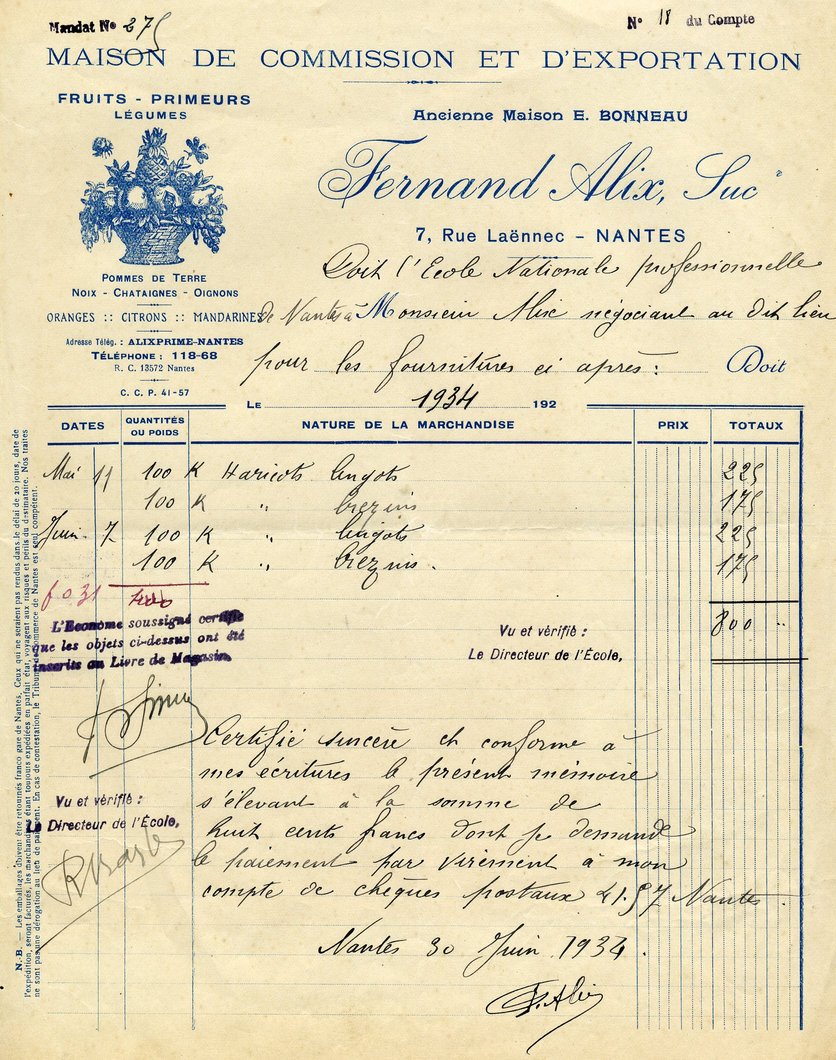 Mandat No 275
No 18 du Compte
MAISON DE COMMISSION ET D'EXPORTATION
FRUITS - PRIMEURS
LÉGUMES
POMMES DE TERRE
NOIX - CHATAIGNES - OIGNONS
ORANGES :: CITRONS :: MANDARINES
Adresse Télég. : ALIXPRIME-NANTES
TÉLÉPHONE : 118-68
R. C. 13572 Nantes
C. C. P. 41-57
Ancienne Maison E. BONNEAU
Fernand Alix, Sucr
7, Rue Laënnec - NANTES
Doit l'Ecole Nationale professionnelle
de Nantes à Monsieur Alix négociant au dit lieu
pour les fournitures ci après : Doit
LE 1934 192
DATES QUANTITÉS OU POIDS NATURE DE LA MARCHANDISE PRIX TOTAUX
Mai 11 100 K Haricots lingots 225
100 K " 175
Juin 7 100 K " lingots 225
100 K " 175
fo 31
800 "
L'Econome soussigné certifie
que les objets ci-dessus ont été
inscrits au Livre de Magasin.
Vu et vérifié :
Le Directeur de l'École,
Certifié sincère et conforme à
mes écritures le présent mémoire
s'élevant à la somme de
huit cents francs dont je demande
le paiement par virement à mon
compte de chèques postaux 41.57 Nantes.
Vu et vérifié :
Le Directeur de l'École,
Nantes 30 Juin 1934.
F. Alix
N. B. — Les emballages doivent être retournés franco gare de Nantes. Ceux qui ne seraient pas rendus dans le délai de 20 jours, date de
l'expédition, seront facturés, les marchandises étant toujours expédiées en parfait état, voyagent aux risques et périls du destinataire. Nos traites
ne sont pas une dérogation au lieu de paiement. En cas de contestation, le Tribunal de Commerce de Nantes est seul compétent.